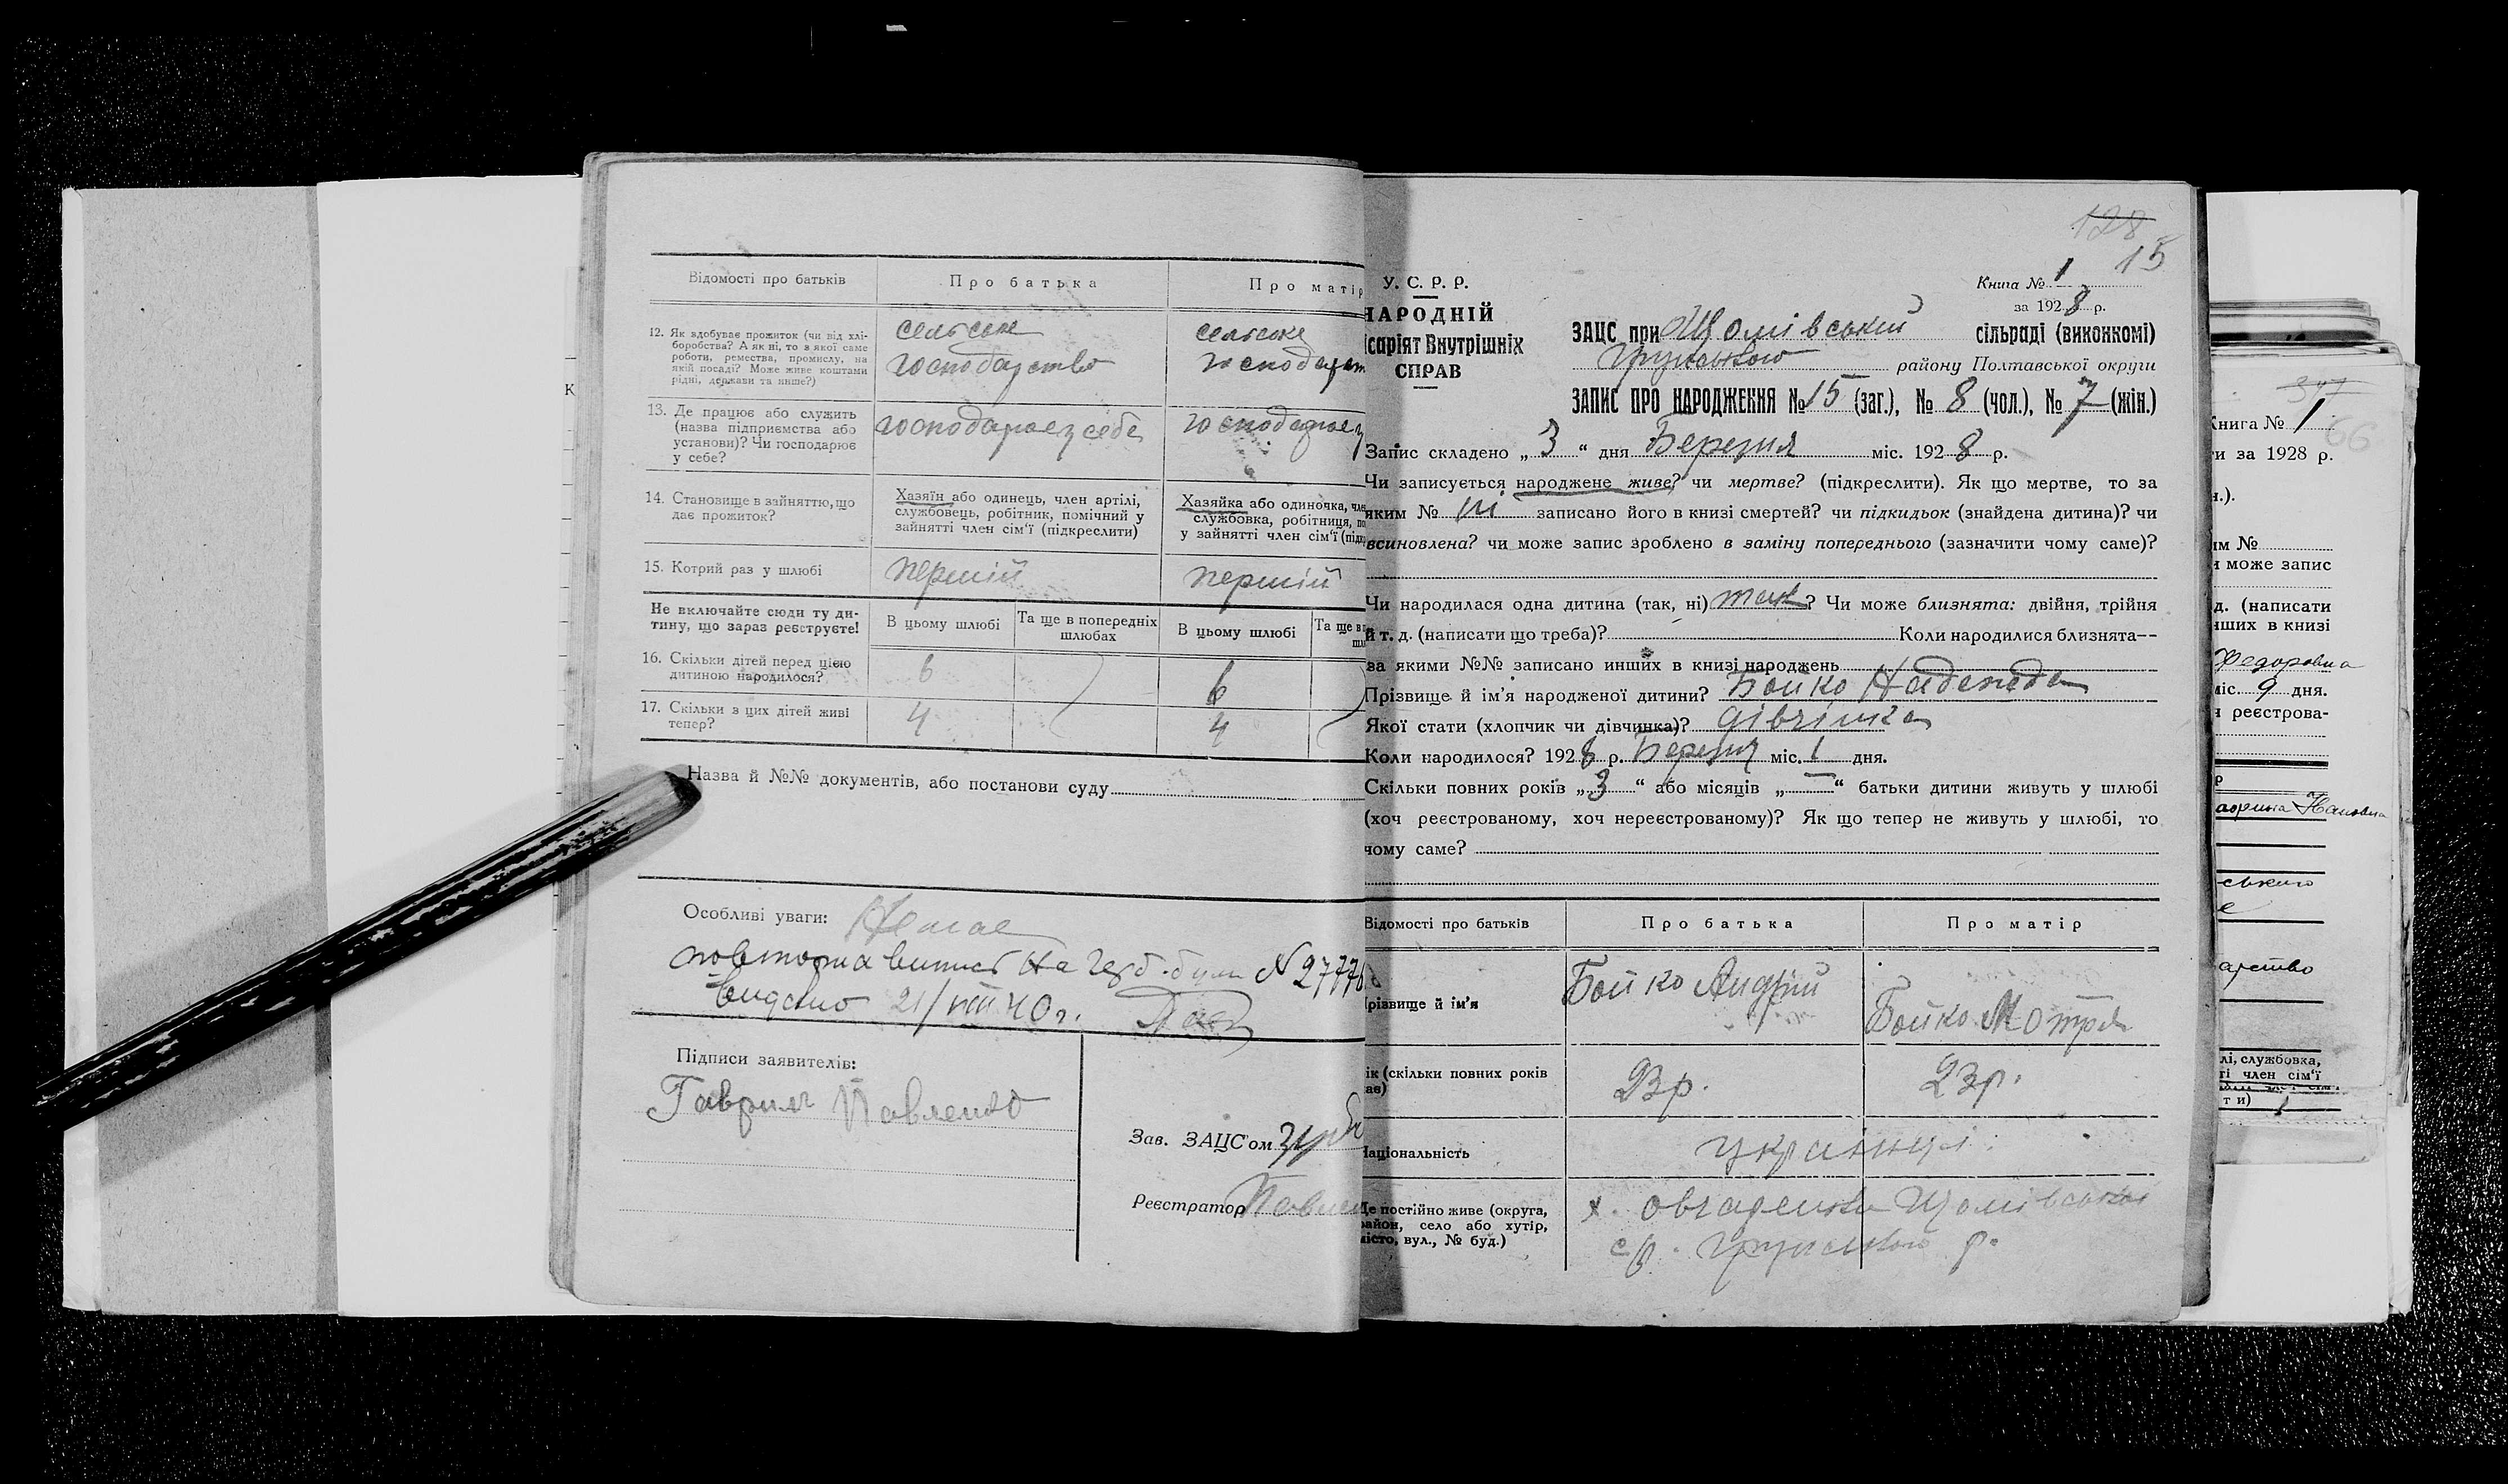 Відомості про батьків
Про батька
Про матір
12. Як здобуває прожиток (чи від хлі-
боробства? А як ні, то з якої саме
роботи, ремества, промислу, на
якій посаді? Може живе коштами
рідні, держави та инше?)
сельське
господарство
сельське
господарст
13. Де працює або служить
(назва підприємства або
установи)? Чи господарює
у себе?
господарює у себе
господарює у
14. Становище в зайняттю, що
дає прожиток?
Хазяїн або одинець, член артілі,
службовець, робітник, помічний у
зайнятті член сім'ї (підкреслити)
Хазяйка або одиночка, чле
службовка, робітниця, по
у зайнятті член сім'ї (підкр
15. Котрий раз у шлюбі
перший
перший
Не включайте сюди ту ди-
тину, що зараз реєструєте!
В цьому шлюбі
Та ще в попередніх
шлюбах
В цьому шлюбі
Та ще в п
шлю
16. Скільки дітей перед цією
дитиною народилося?
6
6
17. Скільки з цих дітей живі
тепер?
4
4
Назва й №№ документів, або постанови суду
Особливі уваги: Немає
повторна випись на герб. бум. N 27776
видано 21/VIII 40 г.
Підписи заявителів:
Гаврило Павленко
Зав. ЗАЦС'ом
Реєстратор Павлен
128
15
У. С. Р. Р.
НАРОДНІЙ
ісаріят Внутрішніх
СПРАВ
Книга № 1
за 1928 р.
ЗАЦС при Щомівській сільраді (виконкомі)
Грунського району Полтавської округи
ЗАПИС ПРО НАРОДЖЕННЯ № 15 (заг.), № 8 (чол.), № 7 (жін.)
Запис складено „ 3 “ дня Березня міс. 1928 р.
Чи записується народжене живе? чи мертве? (підкреслити). Як що мертве, то за
яким № ні записано його в книзі смертей? чи підкидьок (знайдена дитина)? чи
всиновлена? чи може запис зроблено в заміну попереднього (зазначити чому саме)?
Чи народилася одна дитина (так, ні) так? Чи може близнята: двійня, трійня
й т. д. (написати що треба)? Коли народилися близнята—
за якими №№ записано инших в книзі народжень
Прізвище й ім'я народженої дитини? Бойко Надежда
Якої стати (хлопчик чи дівчинка)? дівчінка
Коли народилося? 1928 р. Березня міс. 1 дня.
Скільки повних років „ 3 “ або місяців „ — “ батьки дитини живуть у шлюбі
(хоч реєстрованому, хоч нереєстрованому)? Як що тепер не живуть у шлюбі, то
чому саме?
Відомості про батьків
Про батька
Про матір
різвище й ім'я
Бойко Андрій
Бойко Мотря
ік (скільки повних років
ає)
23р.
23р.
Національність
українці
Де постійно живе (округа,
район, село або хутір,
місто, вул., № буд.)
х. Овчаренки Щомівської
с/р. Грунського р.
347
66
Книга № 1
и за 1928 р.
н.).
им №
и може запис
д. (написати
нших в книзі
Федоровна
міс. 9 дня.
и реєстрова-
р
Ивановна
ського
е
арство
лі, службовка,
ті член сім'ї
ти)